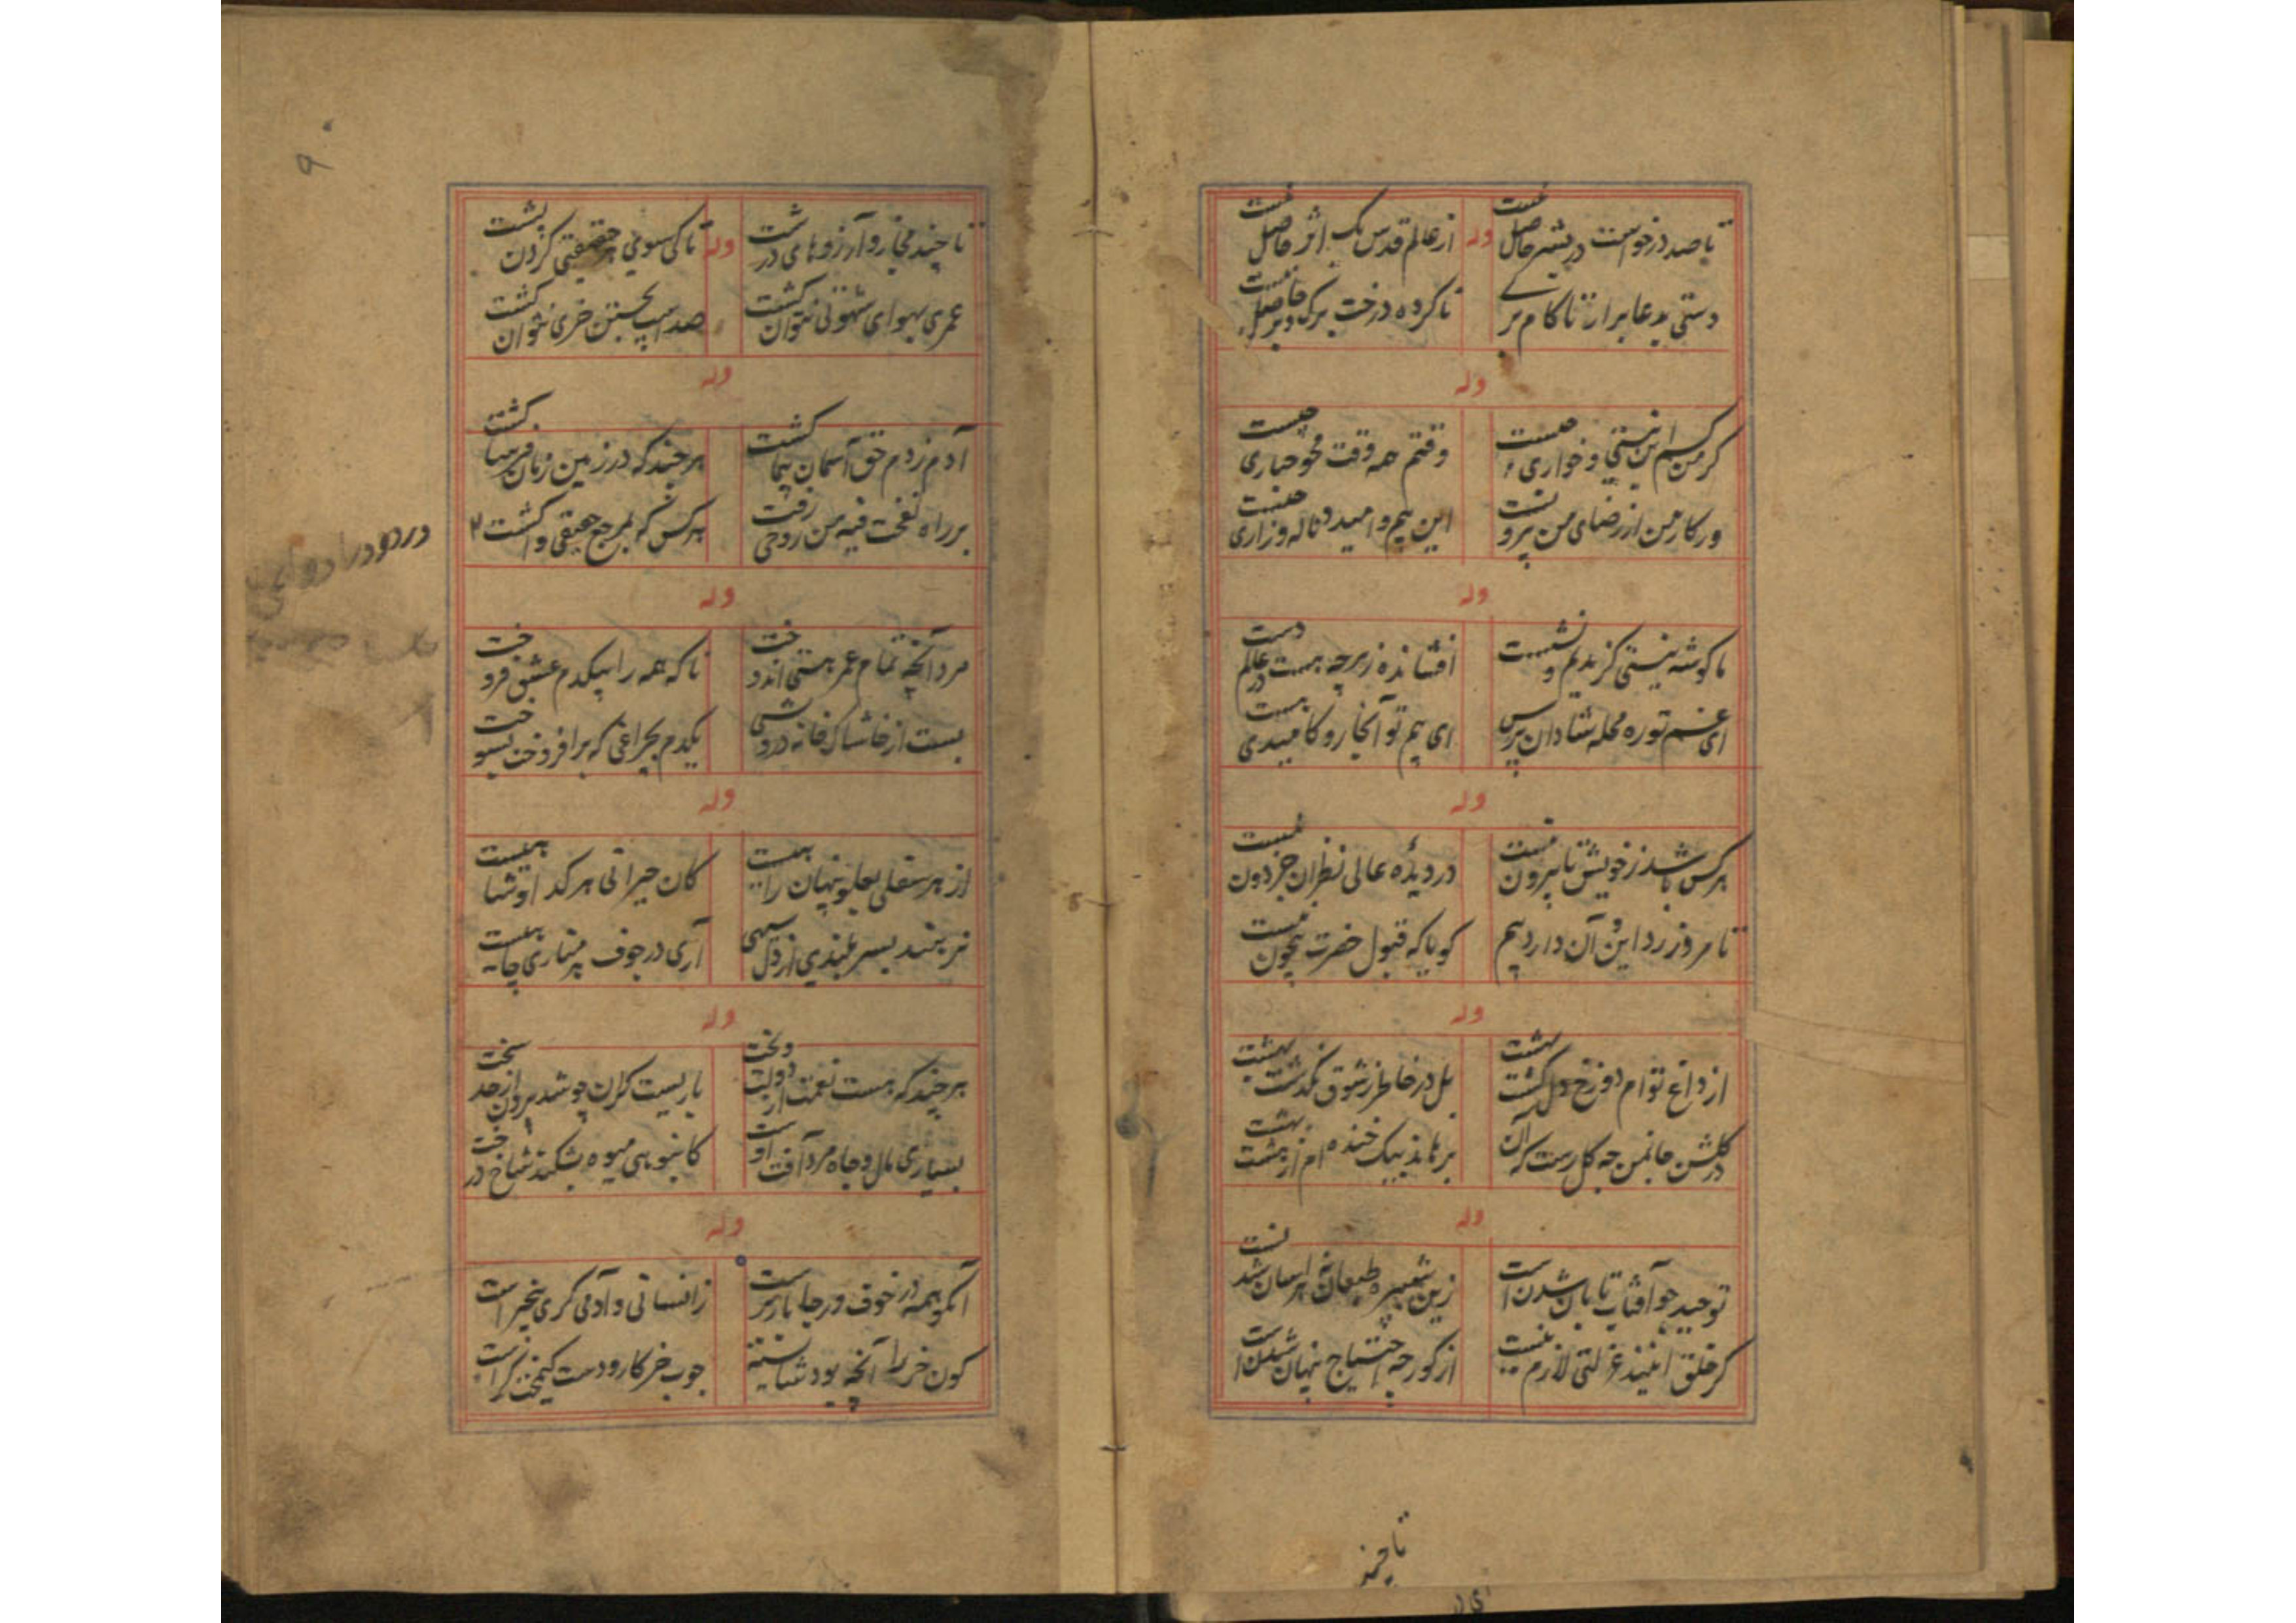 تا صد درخواست در بشر حاصل نیست
وله
از عالم قدس یک اثر حاصل نیست
دستی بدعا برار تا کام
ناکرده درخت برک و بر حاصل نیست
وله
کر من کسم این نیستی و خواری چیست
وقتم همه وقت محو جباری چیست
ور کار من از رضای من بیرو نست
این بیم و امید و ناله و زاری چیست
وله
ما کوشه نیستی کزیدیم و نشست
افشانده ز هرچه هست در عالم دست
ای غم تو ره محله شادان پرس
ای بیم تو آنجا رو کامیدی هست
وله
هرکس باشد ز خویش تا بیرون نیست
در دیدهٔ عالی نظران جز دون نیست
تا مرو ز رد این و آن دارد بیم
کویا که قبول حضرت بیچون نیست
وله
از داغ توام دوزخ دل کشت بهشت
بل در خاطر ز شوق نکذشت بهشت
در کلشن جانمن چه کل رست که آن
بر ماند بیک خنده ام از هشت بهشت
وله
توحید چو آفتاب تابان شدن است
زین شپره طبعان نه هراسان شد نست
کر خلق نبیند عزلتی لازم نیست
از کور چه احتیاج پنهان شدن است
تا چند
۹
تا چند مجاز و آرزوهای درشت
وله
تا کی سوی هر حقیقتی کردن پشت
عمری بهوای شهوتی نتوان کشت
صد اسپ بجستن خری نتوان کشت
وله
آدم ز دم حق آسمان پیما کشت
هر چند که در زمین زمان فرسا کشت
بر راه نفخت فیه من روحی رفت
هرکس که بمرجع حقیقی وا کشت
وله
مرد آنچه تمام عمر هستی اندوخت
تا که همه را بیکدم عشق فروخت
بست از خاشاک خانه درویشی
یکدم بچراغی که برافروخت بسوخت
وله
از هر سفلی بعلو پنهان راهیست
کان حیرانی هر کدا و شاهیست
آری در جوف هر مناری چاهیست
وله
هر چند که هست نعمت از دولت و بخت
باریست کران چو شد برون از حد سخت
بسیاری مال و جاه مرد آفت اوست
کانبوهی میوه بشکند شاخ درخت
وله
آنکو همه در خوف و رجا بار بر است
ز انسانی و آدمی کری بیخبر است
کون خر را آنچه بود شایسته
چوب خرکار و دست